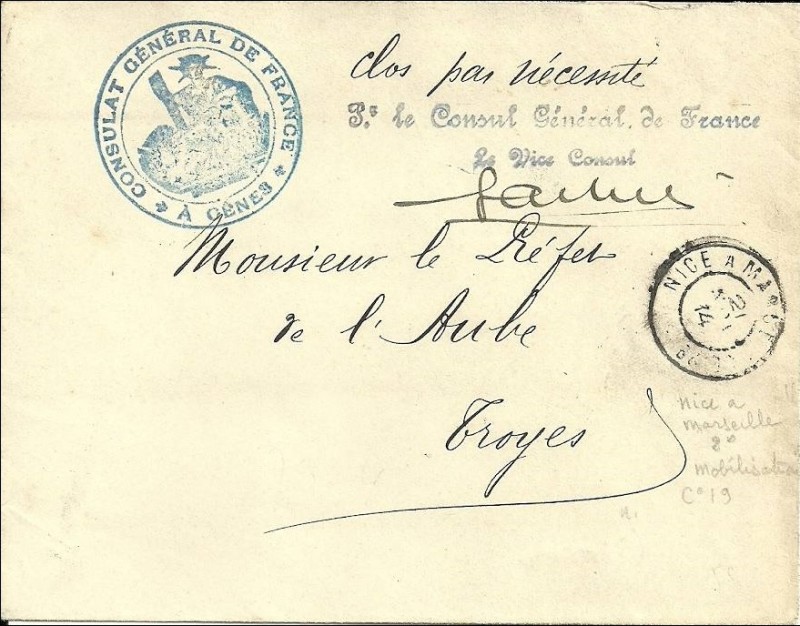 CONSULAT GÉNÉRAL DE FRANCE
À GÊNES
clos par nécessité
Pr. le Consul Général de France
Le Vice Consul
Monsieur le Préfet
de l'Aube
Troyes
NICE A MARS
14
Nice a
Marseille
2°
mobilisation
C° 19